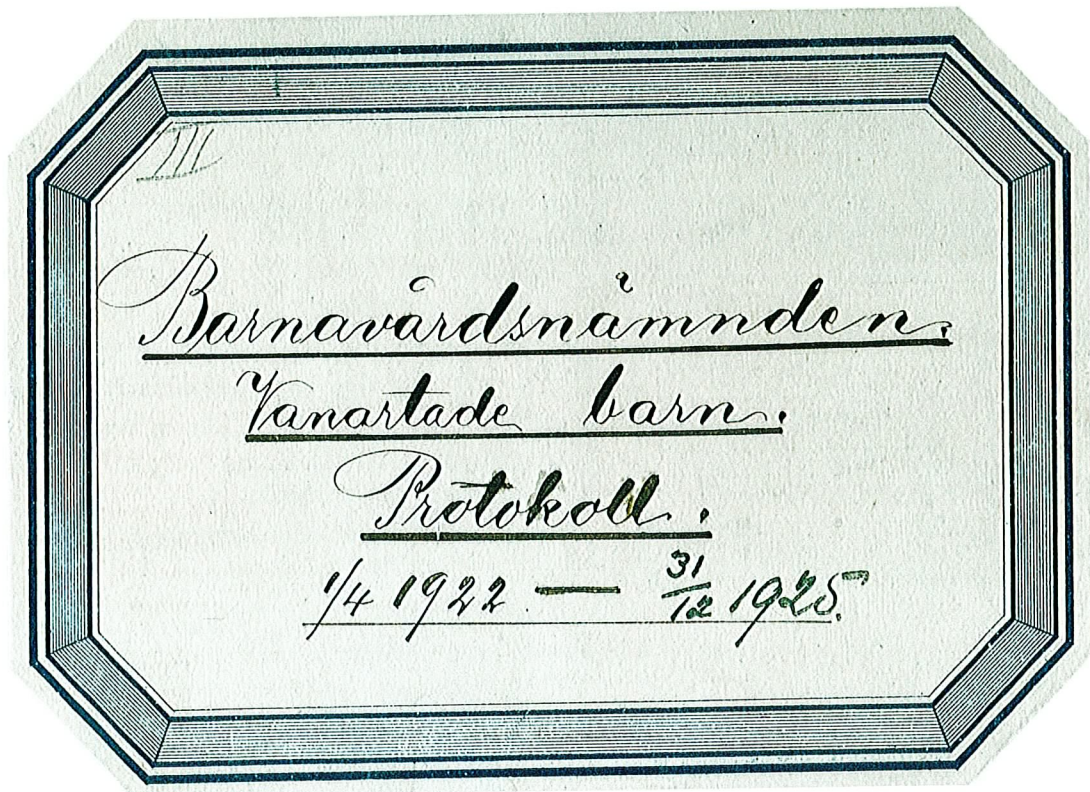 III
Barnavårdsnämnden.
Vanartade barn.
Protokoll.
1/4 1922 — 31/12 1925.